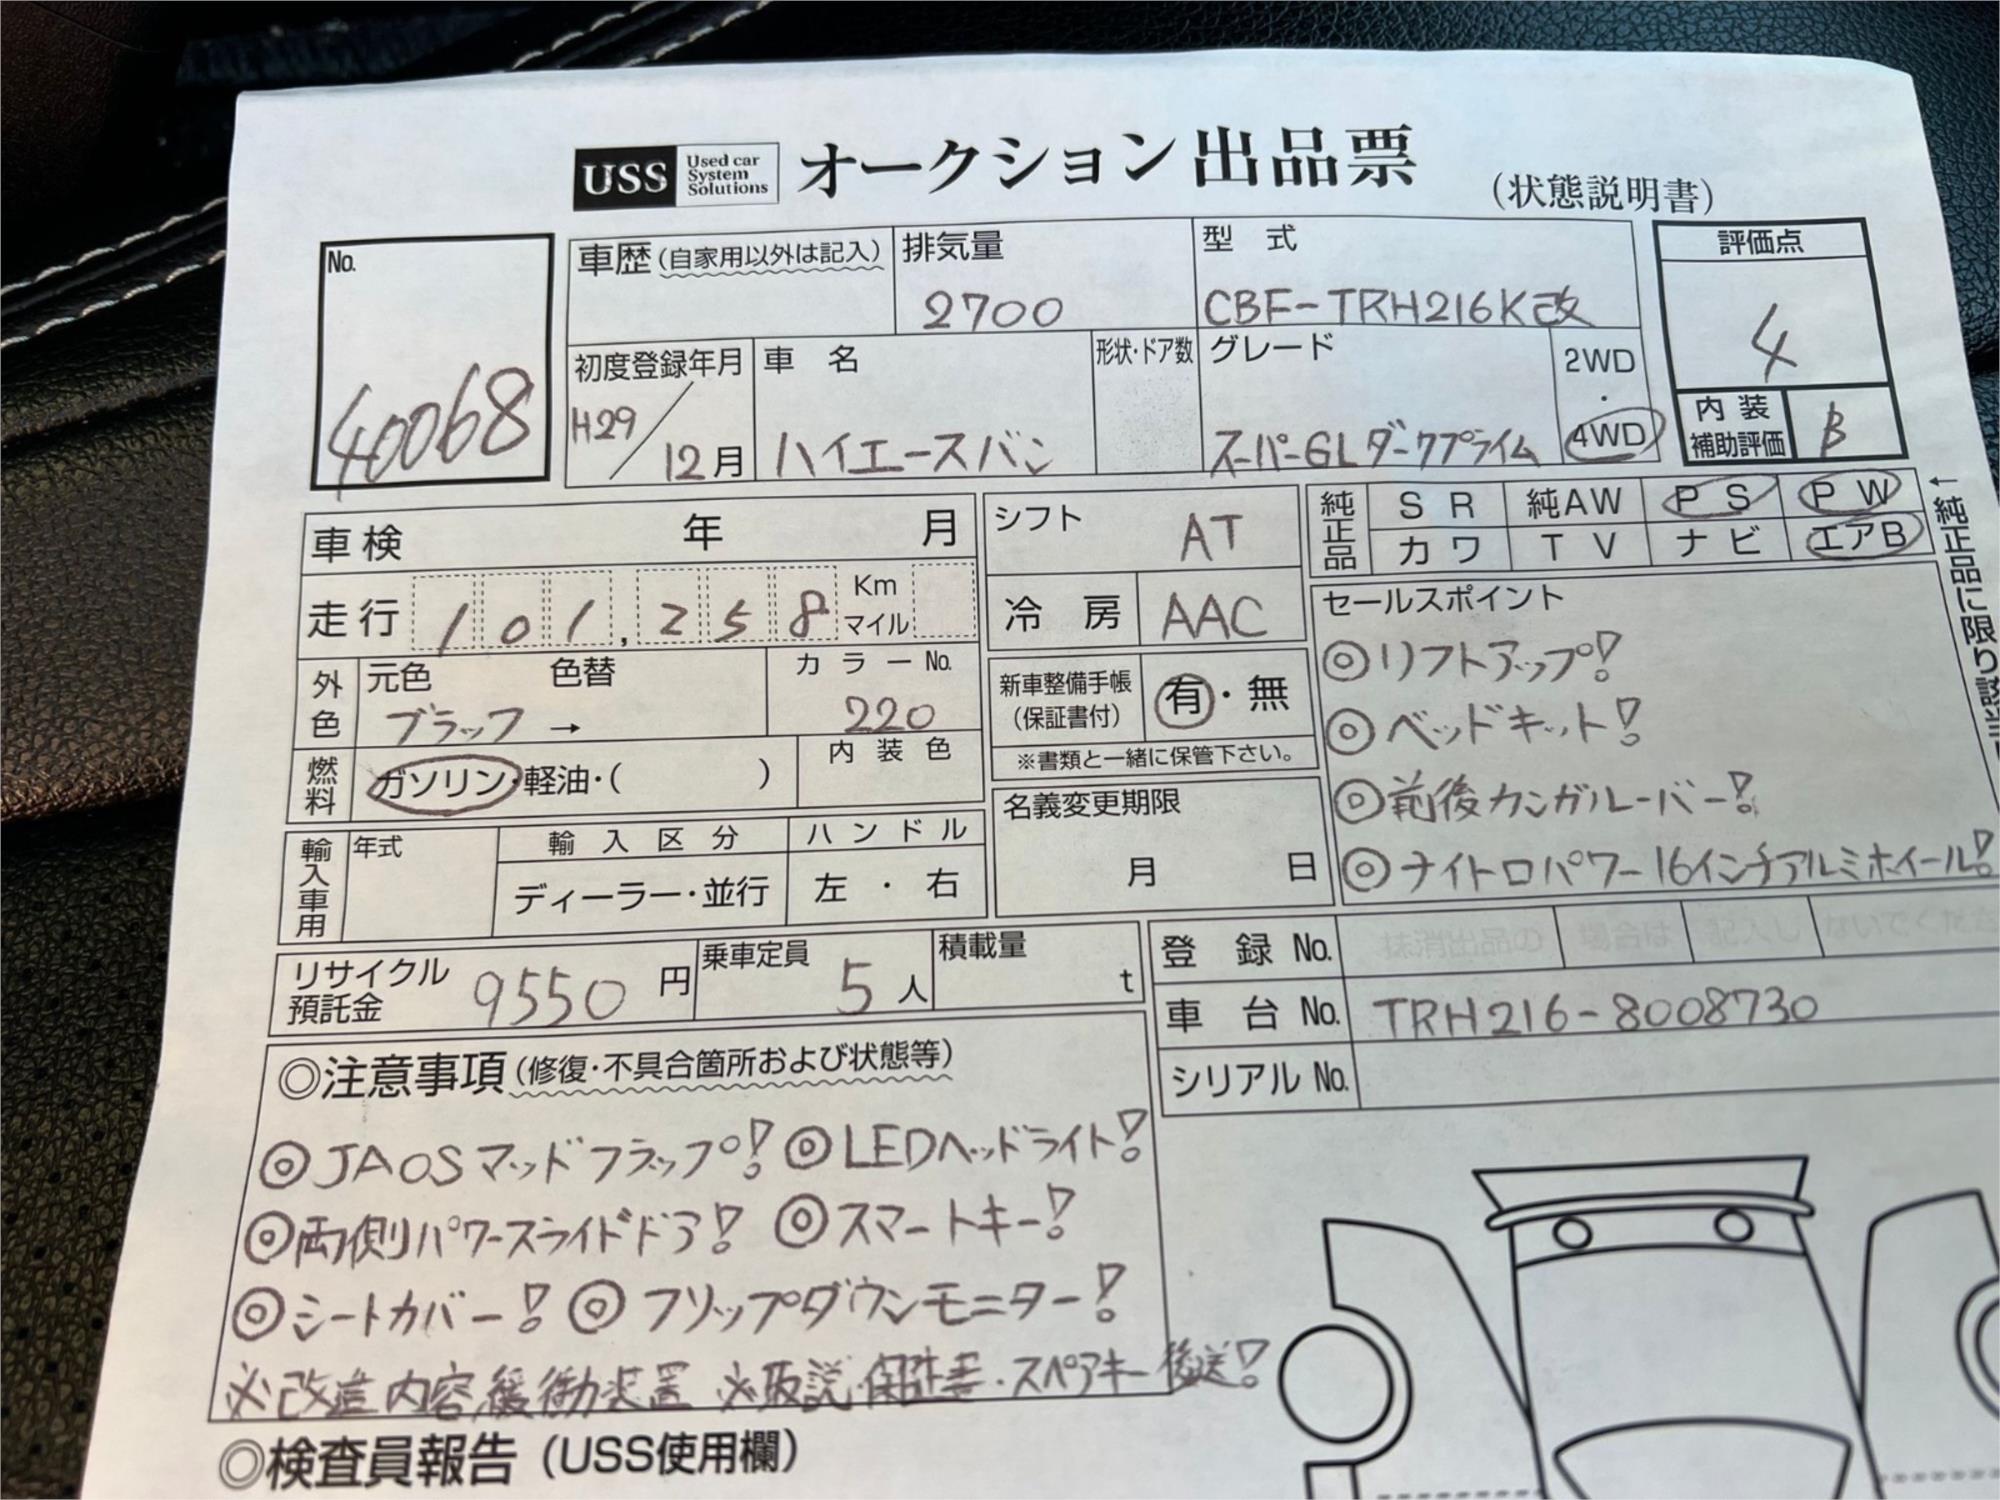 USS Used car System Solutions オークション出品票 (状態説明書)
No. 40068
車歴(自家用以外は記入) 排気量 2700 型式 CBF-TRH216K改 評価点 4
初度登録年月 H29/12月 車名 ハイエースバン 形状・ドア数 グレード スーパーGLダークプライム 2WD・4WD 内装補助評価 B
車検 年 月 シフト AT 純正品 SR 純AW PS PW
カワ TV ナビ エアB
↑純正品に限り該当
走行 101,258 Km マイル 冷房 AAC
外色 元色 ブラック → 色替 カラーNo. 220
新車整備手帳(保証書付) 有・無
※書類と一緒に保管下さい。
燃料 ガソリン・軽油・( ) 内装色
名義変更期限 月 日
セールスポイント
◎リフトアップ!
◎ベッドキット!
◎前後カンガルーバー!
◎ナイトロパワー16インチアルミホイール!
輸入車用 年式 輸入区分 ディーラー・並行 ハンドル 左・右
リサイクル預託金 9550円 乗車定員 5人 積載量 t
登録No. 抹消出品の場合は記入しないでくださ
車台No. TRH216-8008730
シリアルNo.
◎注意事項(修復・不具合箇所および状態等)
◎JAOSマッドフラップ! ◎LEDヘッドライト!
◎両側パワースライドドア! ◎スマートキー!
◎シートカバー! ◎フリップダウンモニター!
※改造内容,緩衝装置 ※取説・保証書・スペアキー後送!
◎検査員報告(USS使用欄)